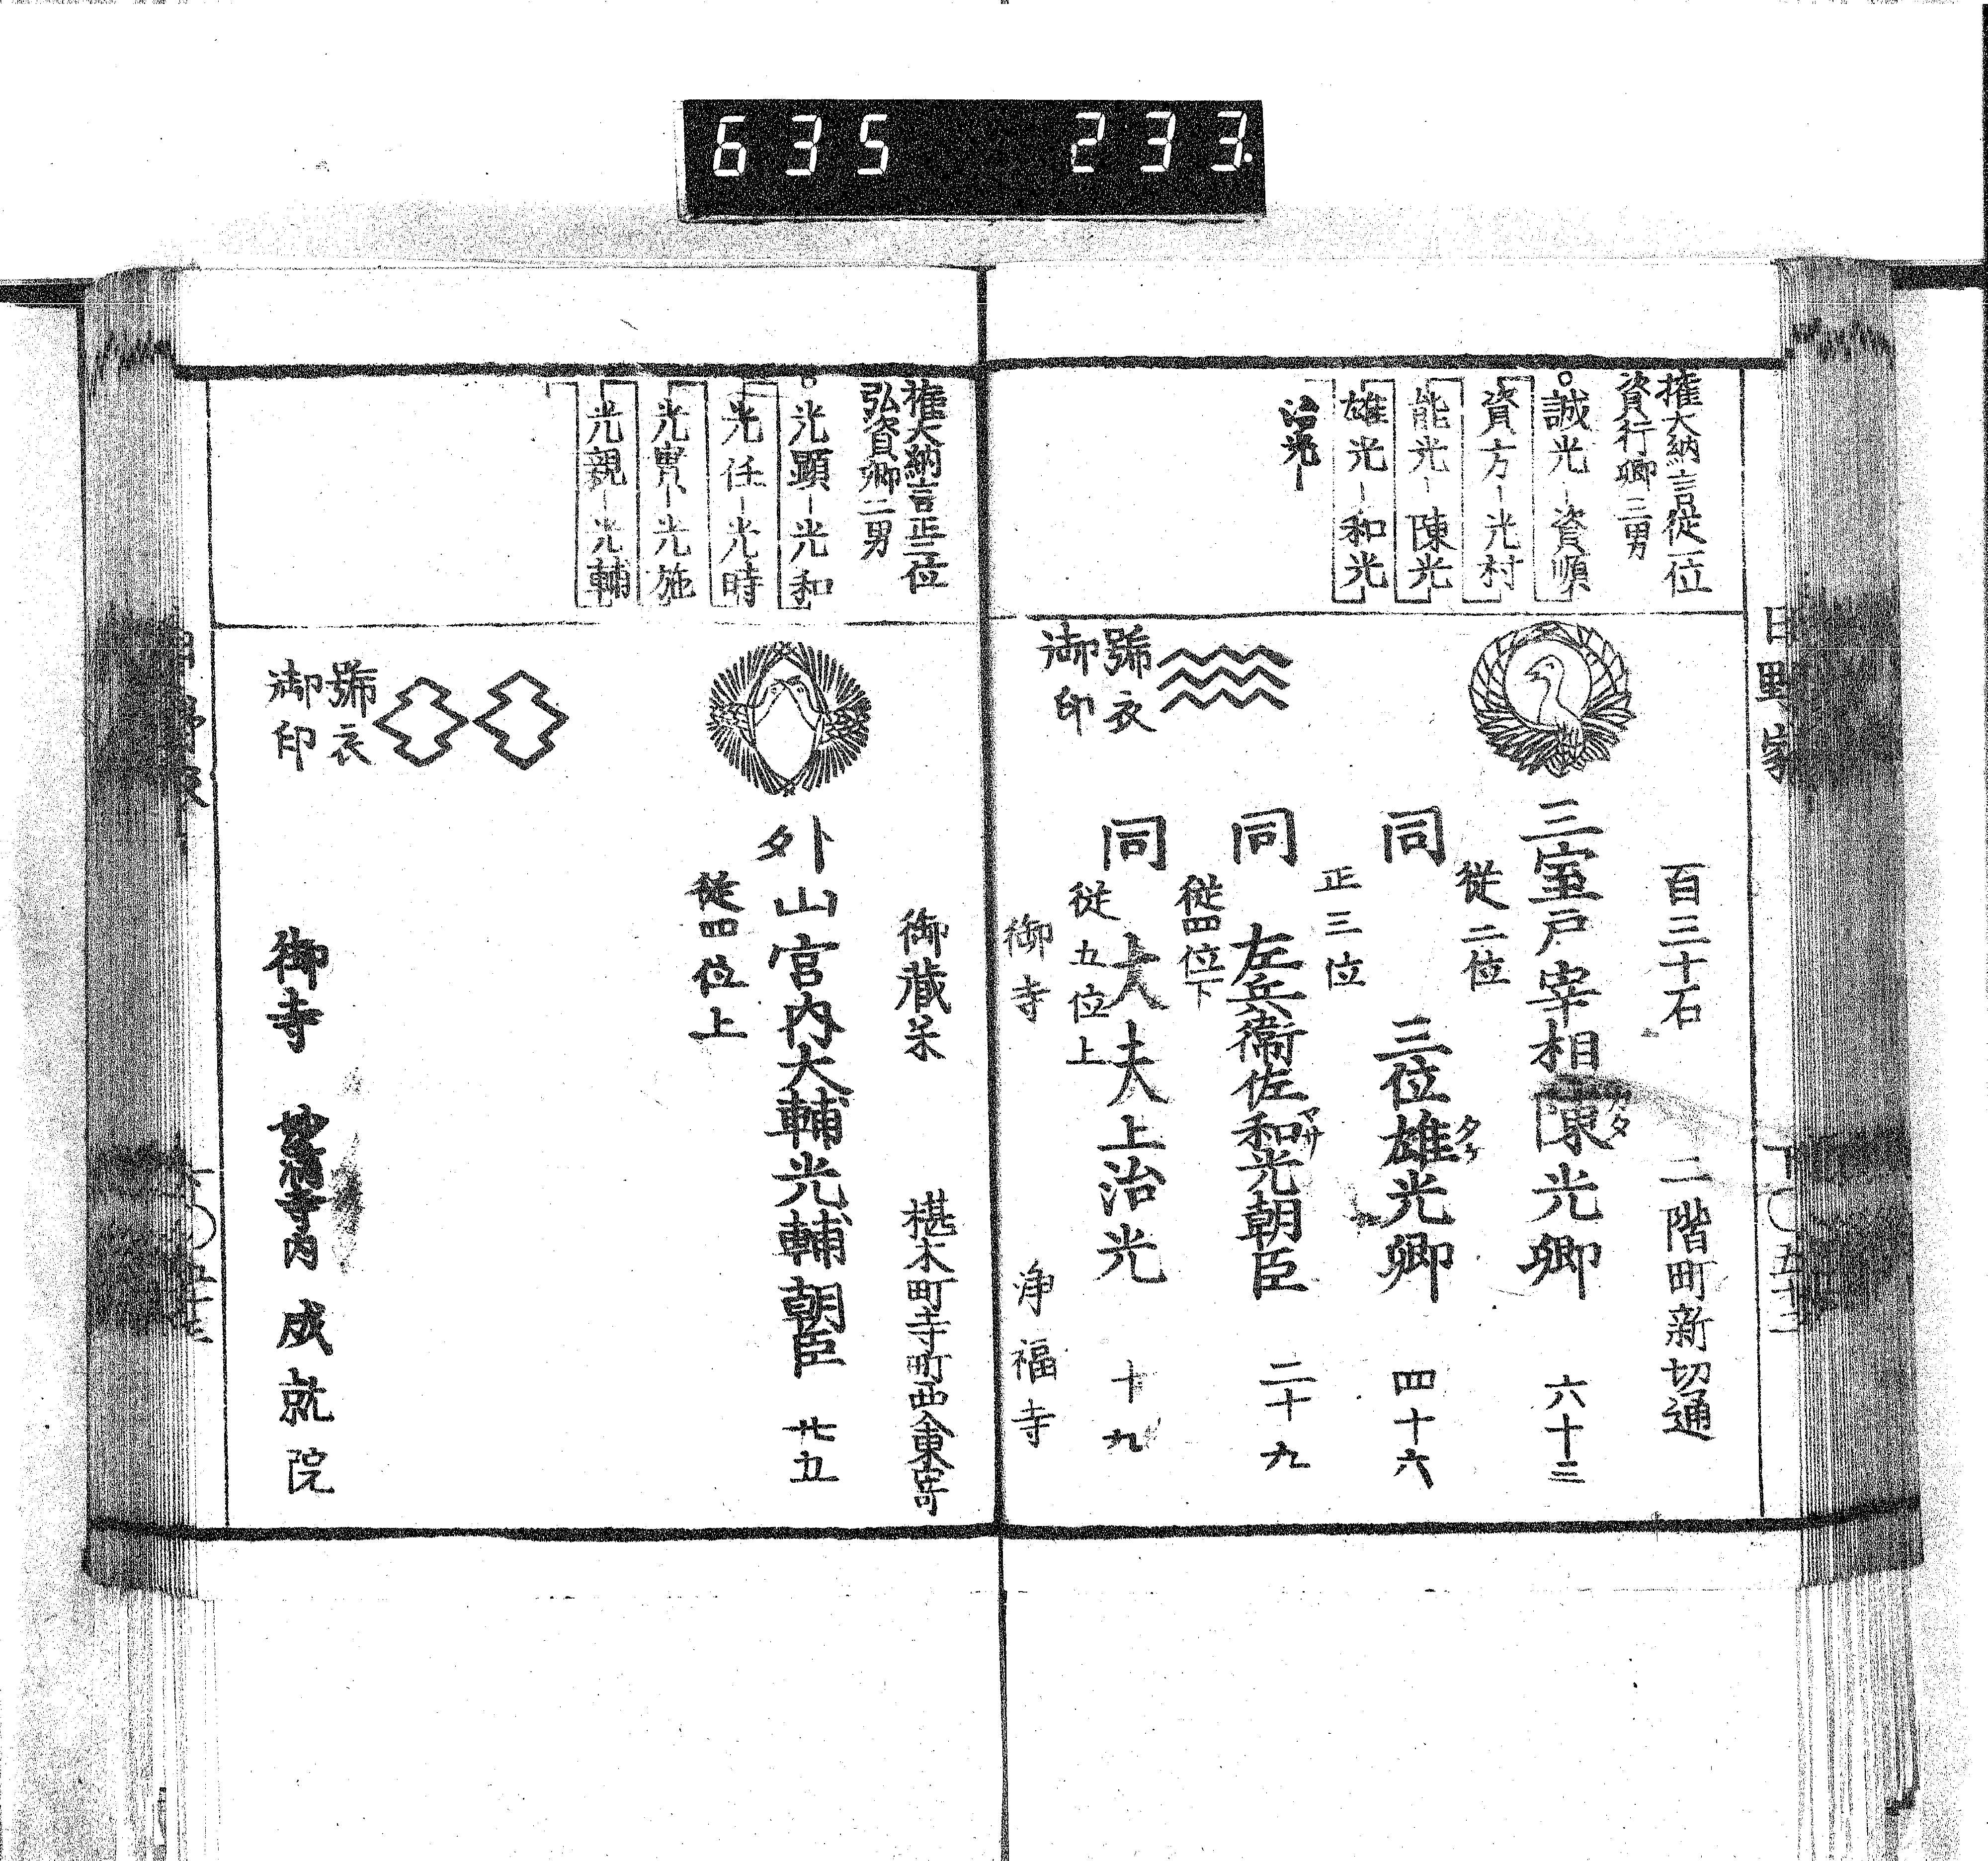 635 233.
日野家
下〇五十二
權大納言從一位
資行卿二男
誠光-資順
資方-光村
能光-陳光
雄光-和光
治光-
百三十石
二階町新切通
三室戸宰相陳光卿 六十三
從二位
同 三位雄光卿 四十六
正三位
同 左兵衛佐和光朝臣 二十九
從四位下
同 大夫上治光 十九
從五位上
號衣
御印
御寺 浄福寺
權大納言正二位
弘資卿二男
光顯-光和
光任-光時
光實-光施
光親-光輔
御蔵米
椹木町寺町西入東寄
外山宮内大輔光輔朝臣 廿五
從四位上
號衣
御印
御寺 寺内 成就院